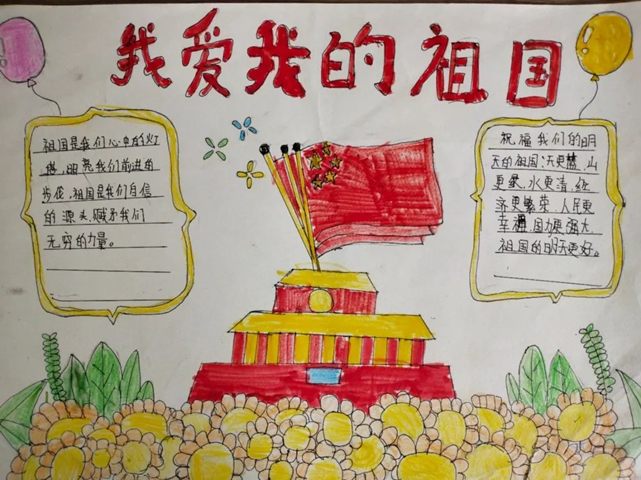 我爱我的祖国
祖国是我们心中的灯
塔,照亮我们前进的
步伐,祖国是我们自信
的源头,赋予我们
无穷的力量。
祝福我们的明
天的祖国:天更蓝,山
更绿,水更清,经
济更繁荣,人民更
幸福,国力更强大
祖国的明天更好。